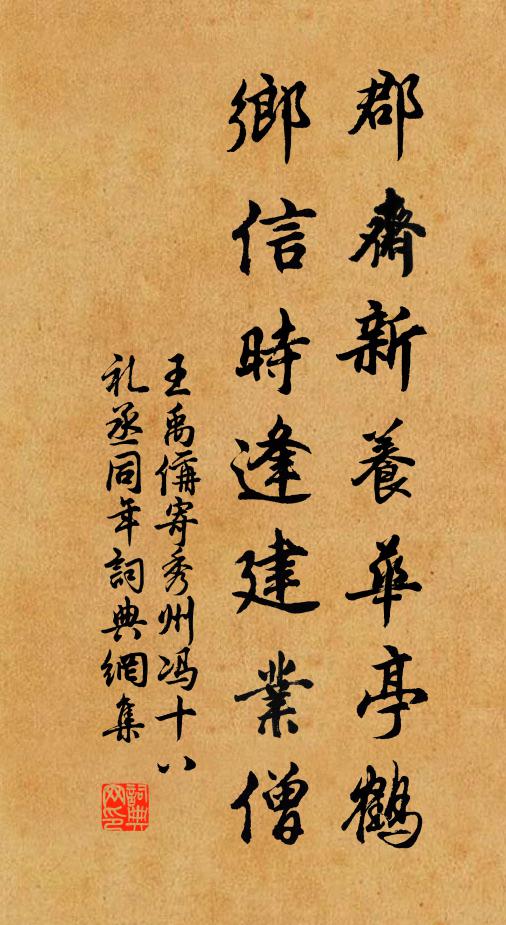 郡齋新養華亭鶴
鄉信時逢建業僧
王禹偁寄秀州冯十八
礼丞同年詞典網集
詞典网印